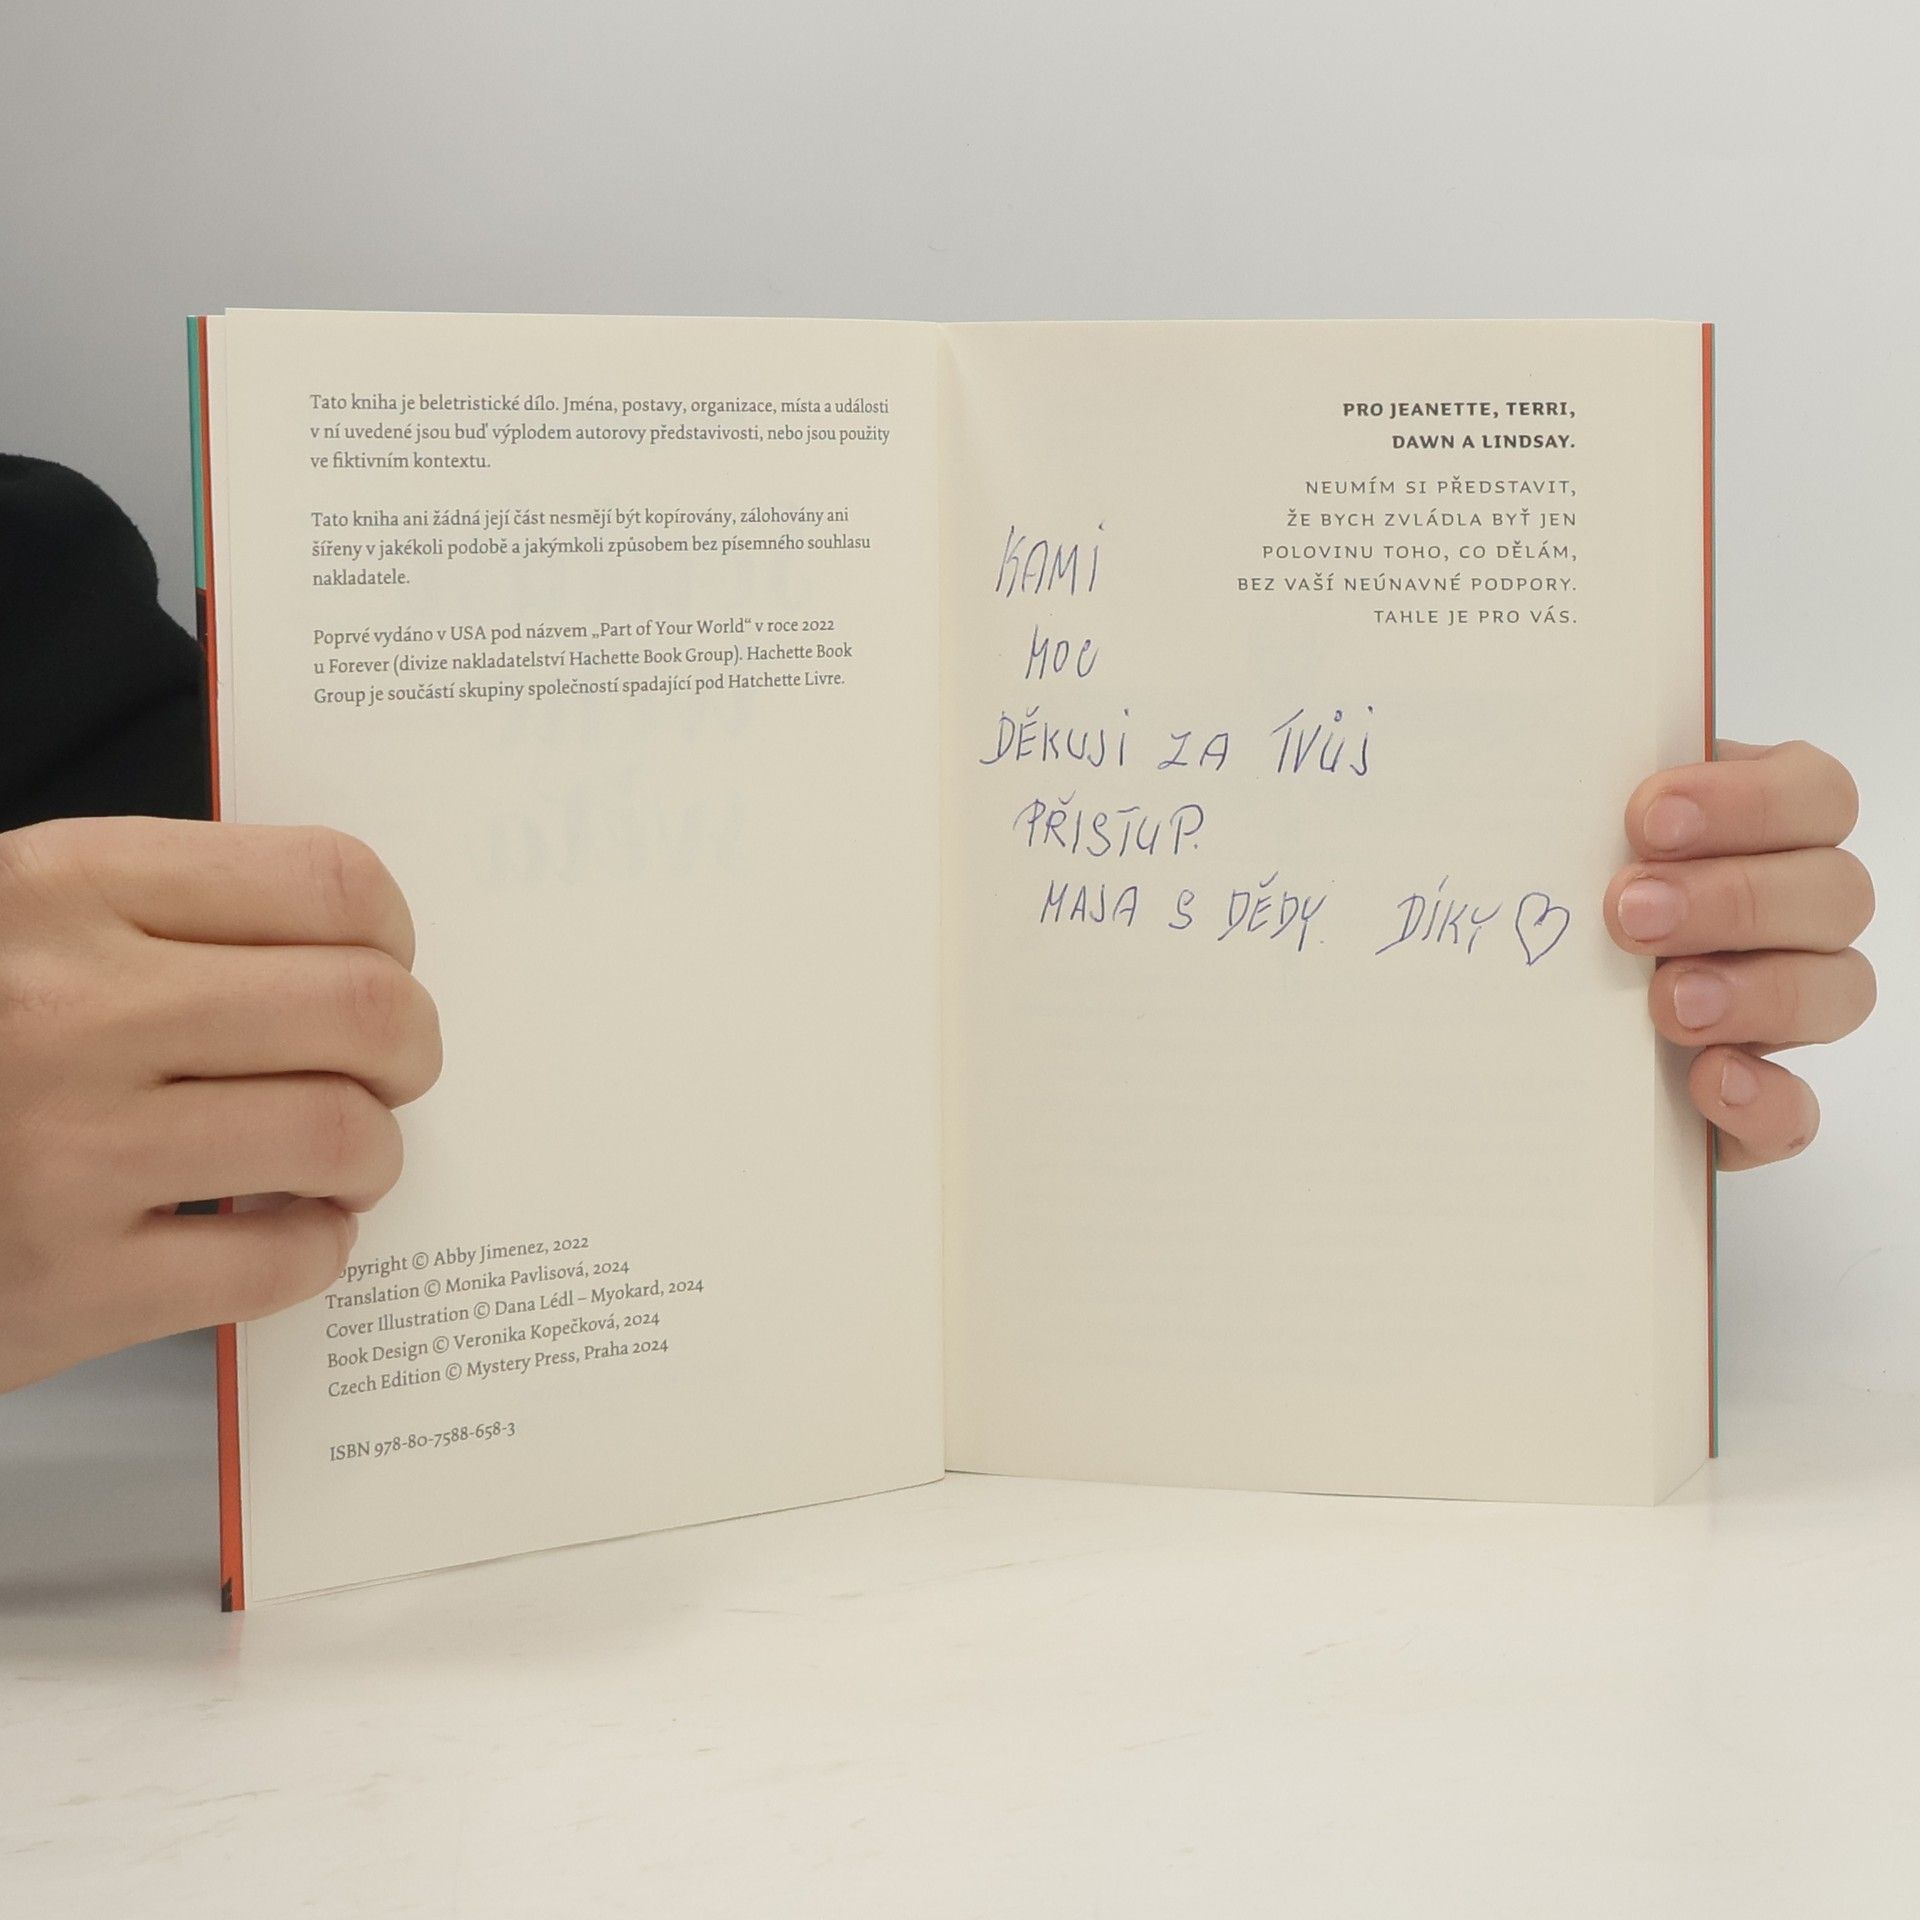 Tato kniha je beletristické dílo. Jména, postavy, organizace, místa a události
v ní uvedené jsou buď výplodem autorovy představivosti, nebo jsou použity
ve fiktivním kontextu.
Tato kniha ani žádná její část nesmějí být kopírovány, zálohovány ani
šířeny v jakékoli podobě a jakýmkoli způsobem bez písemného souhlasu
nakladatele.
Poprvé vydáno v USA pod názvem „Part of Your World“ v roce 2022
u Forever (divize nakladatelství Hachette Book Group). Hachette Book
Group je součástí skupiny společností spadající pod Hatchette Livre.
opyright © Abby Jimenez, 2022
Translation © Monika Pavlisová, 2024
Cover Illustration © Dana Lédl – Myokard, 2024
Book Design © Veronika Kopečková, 2024
Czech Edition © Mystery Press, Praha 2024
ISBN 978-80-7588-658-3
PRO JEANETTE, TERRI,
DAWN A LINDSAY.
NEUMÍM SI PŘEDSTAVIT,
ŽE BYCH ZVLÁDLA BYŤ JEN
POLOVINU TOHO, CO DĚLÁM,
BEZ VAŠÍ NEÚNAVNÉ PODPORY.
TAHLE JE PRO VÁS.
KAMI
MOC
DĚKUJI ZA TVŮJ
PŘISTUP.
MAJA S DĚDY. DÍKY